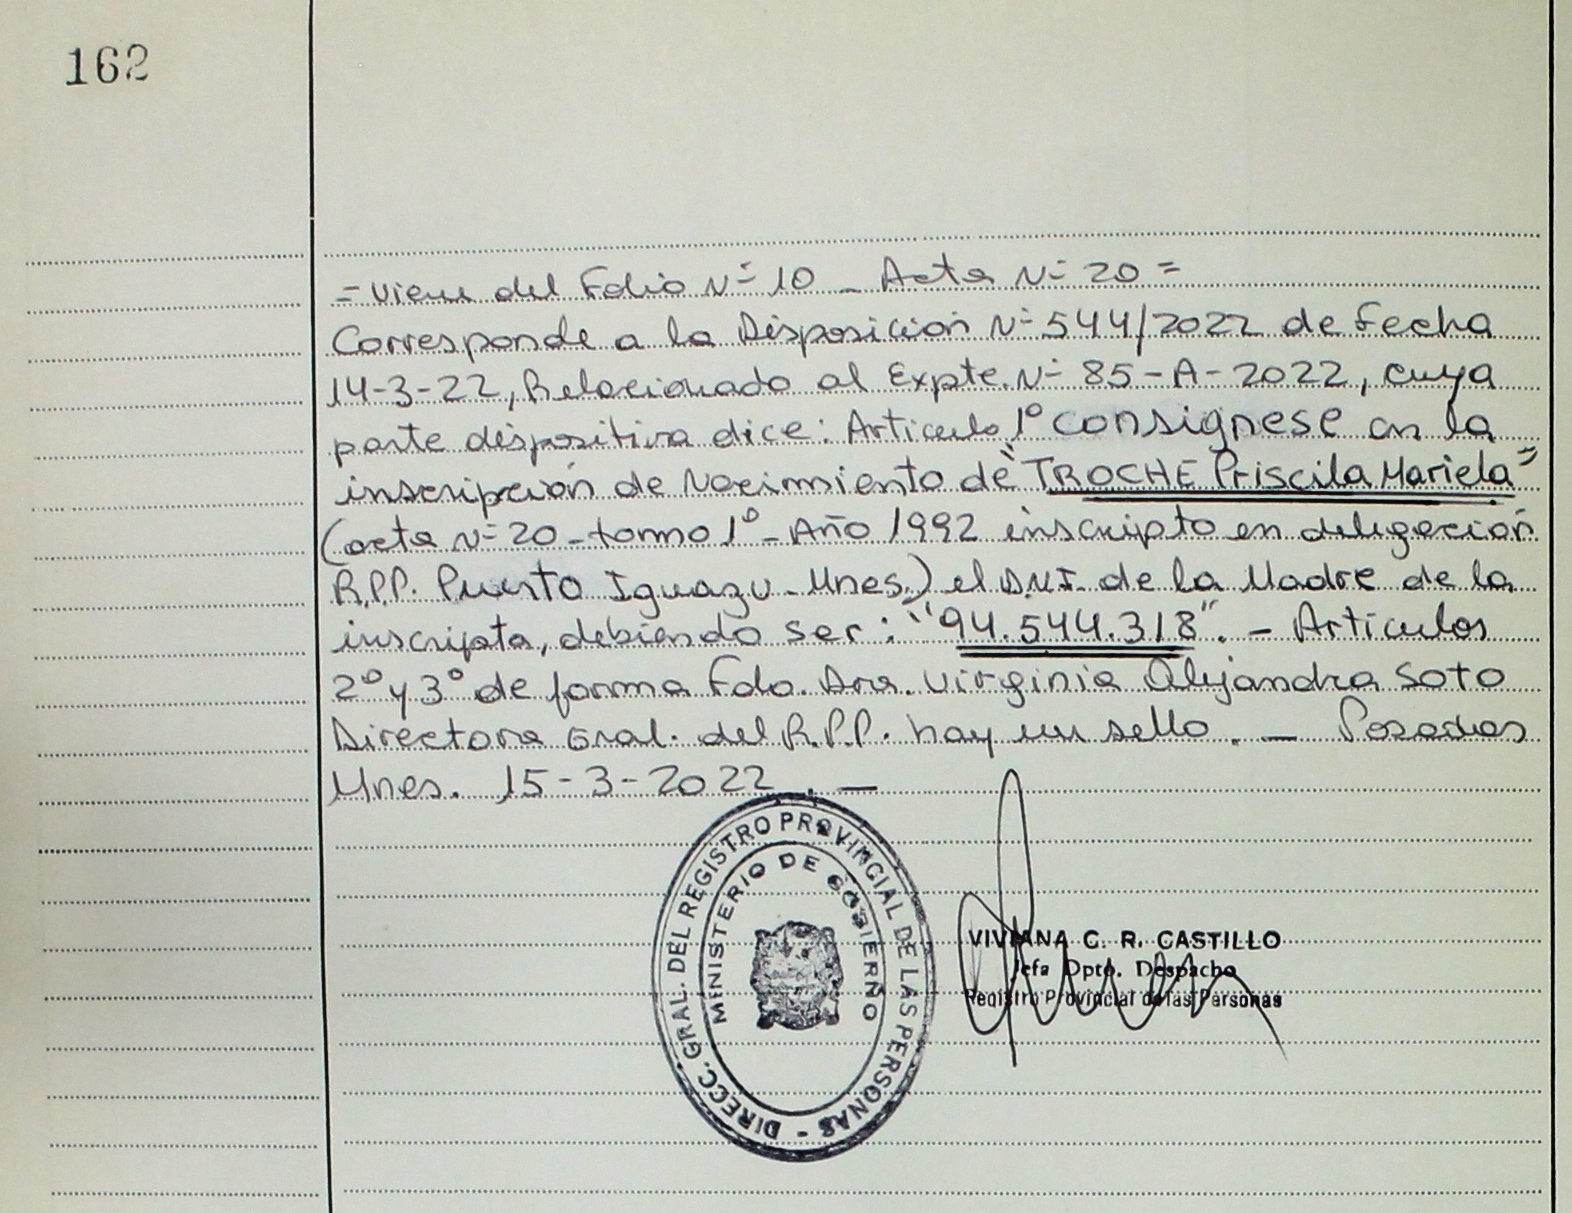 162
=Viene del Folio Nº 10 _ Acta Nº 20=
Corresponde a la Disposición Nº 544/2022 de Fecha
14-3-22, Relacionado al Expte. Nº 85-A-2022, cuya
parte dispositiva dice: Artículo 1º Consígnese en la
inscripción de Nacimiento de "TROCHE Priscila Mariela"
(acta Nº 20 - tomo 1º - Año 1992 inscripto en delegación
R.P.P. Puerto Iguazu - Mnes.) el D.N.I. de la Madre de la
inscripta, debiendo ser: "94.544.318". - Articulos
2º y 3º de forma Fdo. Dra. Virginia Alejandra Soto
Directora Gral. del R.P.P. hay un sello. _ Posadas
Mnes. 15-3-2022. _
DIRECC. GRAL. DEL REGISTRO PROVINCIAL DE LAS PERSONAS -
MINISTERIO DE GOBIERNO
VIVIANA C. R. CASTILLO
Jefa Dpto. Despacho
Registro Provincial de las Personas